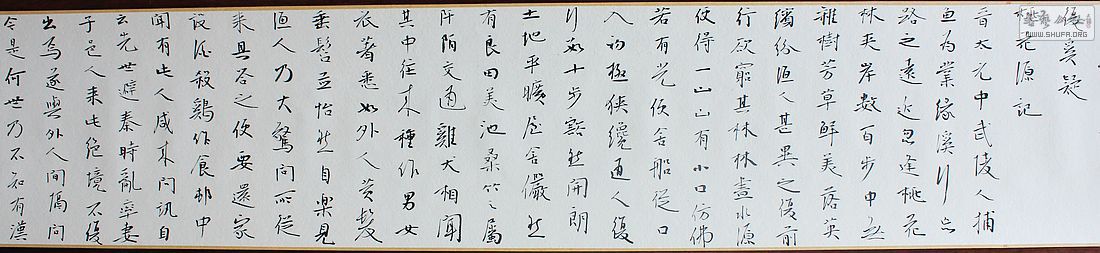 復奚疑
桃花源记
晋太元中武陵人捕
鱼为業缘溪行忘
路之遠近忽逢桃花
林夹岸数百步中無
雜樹芳草鮮美落英
繽纷漁人甚異之復前
行欲窮其林林盡水源
便得一山山有小口仿佛
若有光便舍船從口
入初極狭纔通人復
行数十步豁然開朗
土地平曠屋舍儼然
有良田美池桑竹之屬
阡陌交通雞犬相聞
其中往来種作男女
衣著悉如外人黄髮
垂髫並怡然自樂見
漁人乃大驚問所從
来具答之便要還家
設酒殺鷄作食邨中
聞有此人咸来問訊自
云先世避秦時亂率妻
子邑人来此绝境不復
出焉遂與外人間隔問
今是何世乃不知有漢
WWW.SHUFA.ORG